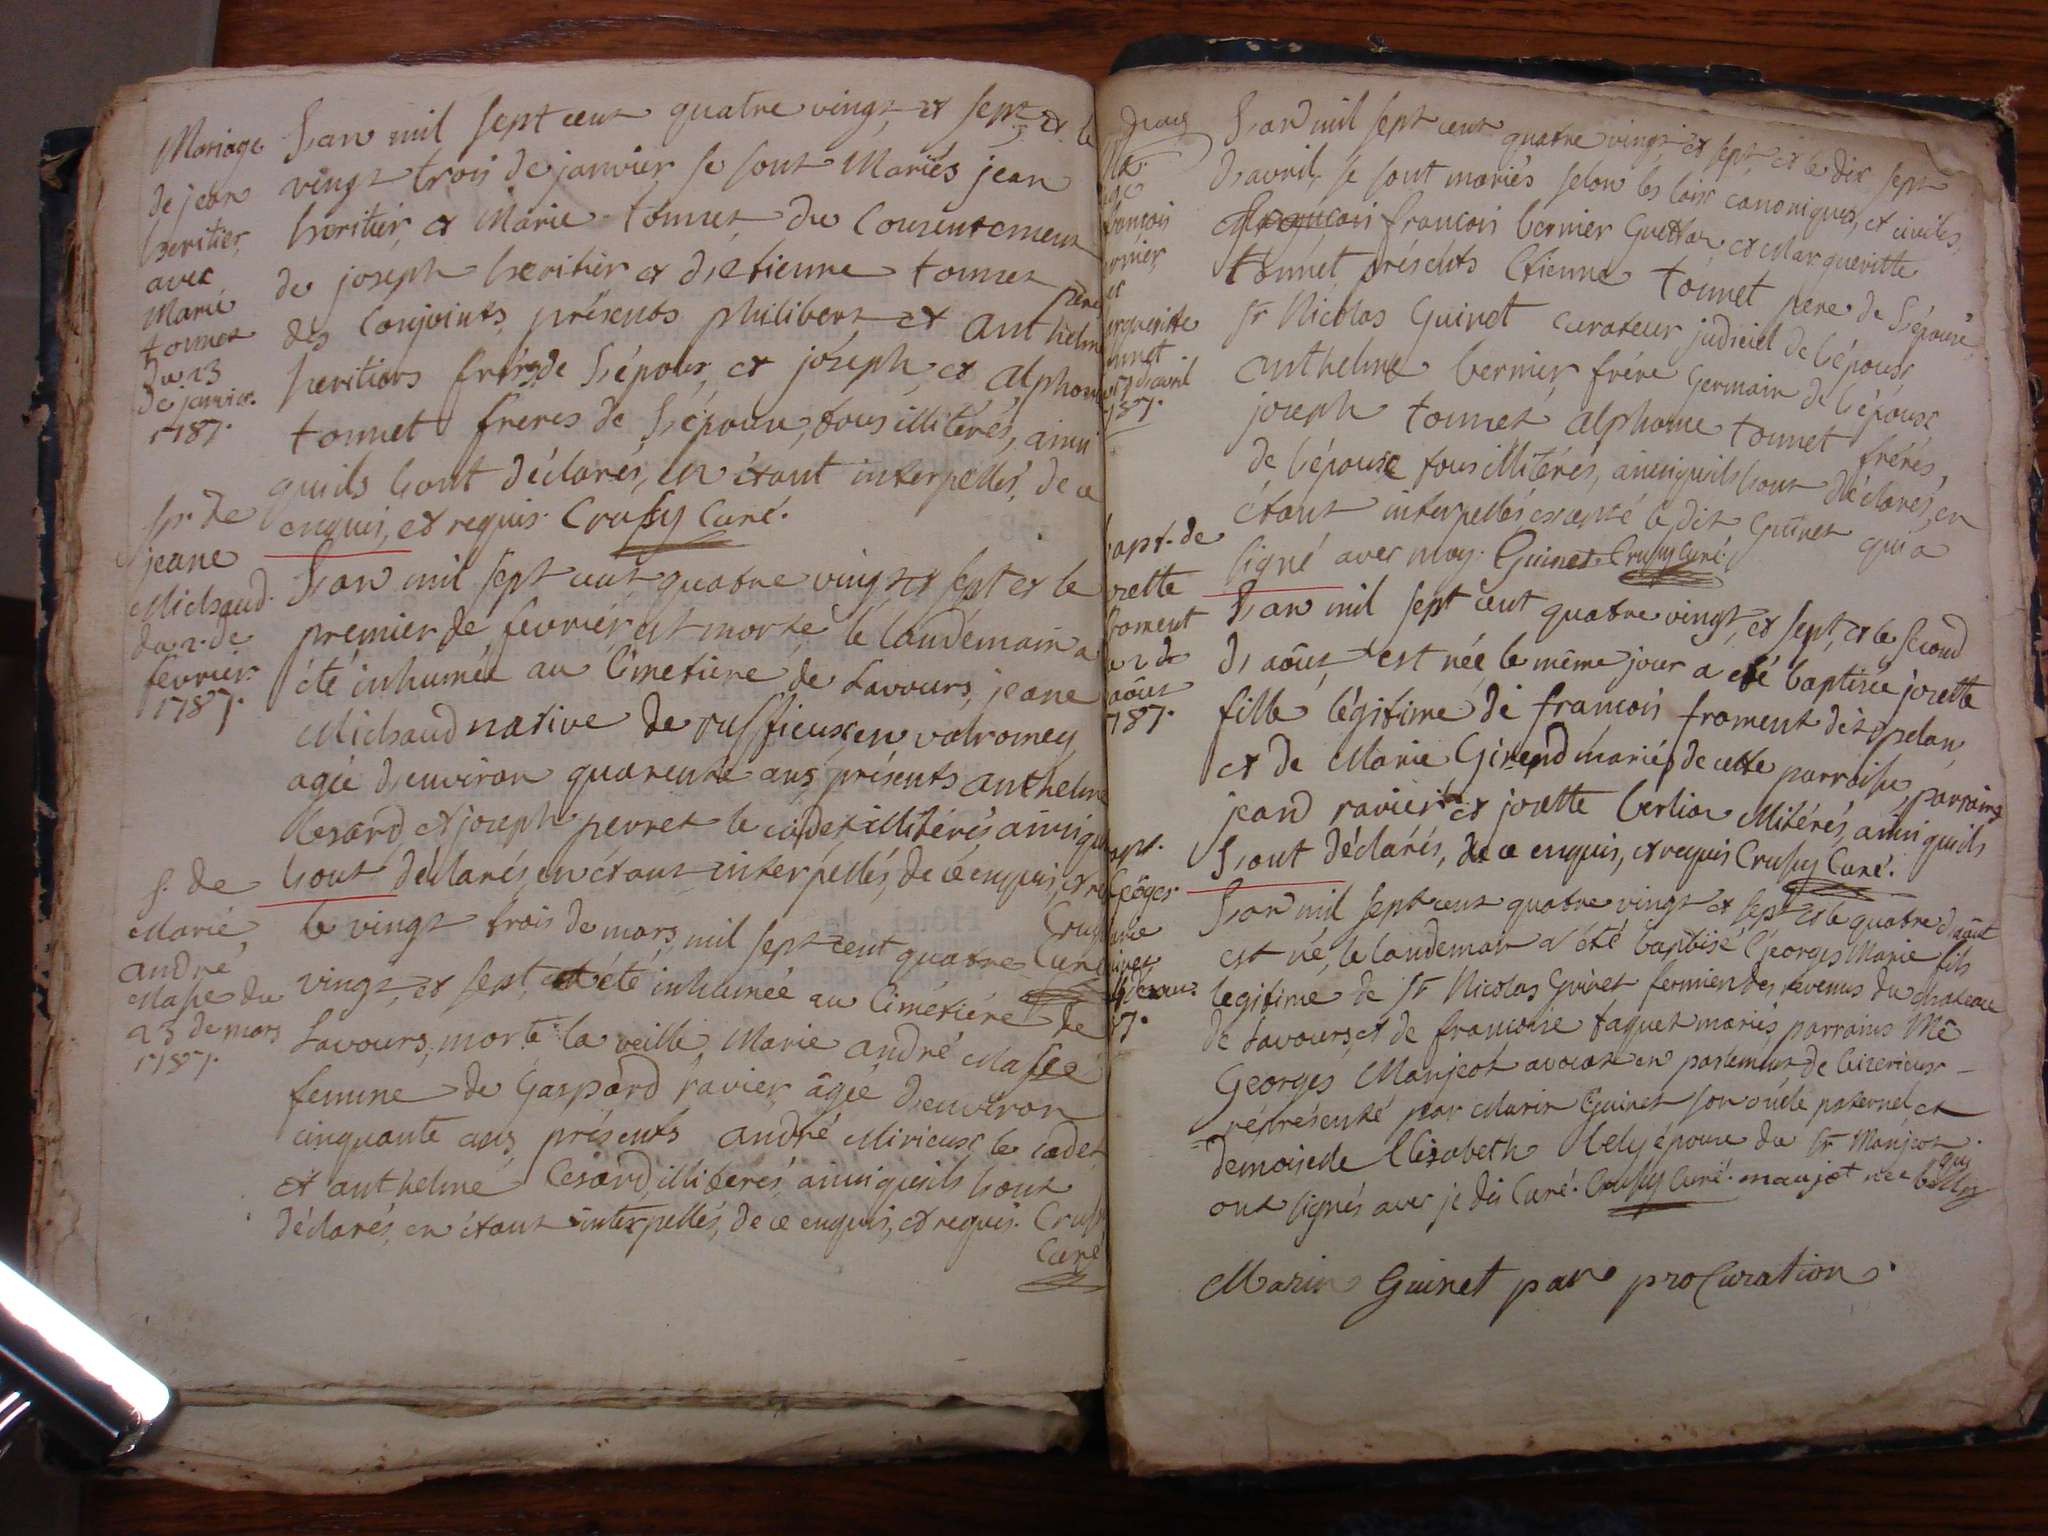 Mariage
de jean
heritier
avec
Marie
tonnet
du 23
de janvier
1787.
L'an mil sept cent quatre vingt et sept et le
vingt trois de janvier se sont Mariés jean
heritier et Marie tonnet du Consentement
de joseph heritier et d'etienne tonnet pere
des Conjoints, présents philibert et anthelme
heritiers frères de L'époux et joséph et alphonse
tonnet freres de L'épouse, tous illitérés, ainsi
quils L'ont déclarés, en étant interpellés, de ce
enquis, et requis. Crussy Curé.
sp. de
jeane
Michaud
du 2. de
fevrier
1787.
L'an mil sept cent quatre vingt et sept et le
premier de fevrier est morte le landemain a
été inhumée au Cimetiere de Lavours, jeane
Michaud native de ruffieux en valromey
agée d'environ quarente ans, présents anthelme
Cesard et joseph perret le cadet illitérés ainsi qu
L'ont déclarés en étant interpellés, de ce enquis, et re
Crussy
Curé
s. de
Marie
andré
Masse du
23 de mars
1787.
le vingt trois de mars mil sept cent quatre
vingt et sept a été inhumée au Cimétiére de
Lavours, morte la veille, Marie andré Masse
femme de Gaspard ravier, âgée d'environ
cinquante ans, présents andré Mirieux le cadet
et anthelme Cesard illiterés ainsi quils L'ont
déclarés, en étant interpellés, de ce enquis, et requis. Crussy
Curé
françois
ernier
et
arguerite
onnet
17 d'avril
787.
L'an mil sept cent quatre vingt et sept et le dix sept
d'avril, se sont mariés selon les loix canoniques, et civiles,
françois bernier et Marguerite
tonnet, présents Etienne tonnet pere de L'épouse,
Sr Nicolas Guinet curateur judiciel de l'époux
anthelme bernier frére germain de l'époux
joseph tonnet alphonse tonnet fréres,
de l'épouse tous illitérés, ainsi quils L'ont déclarés, en
étant interpellés excepté le dit Guinet qui a
signé avec moy. Guinet Crussy Curé.
bapt. de
zette
froment
le 2 de
août
787.
L'an mil sept cent quatre vingt et sept, et le second
D'août est née, le même jour a eté baptisée jozette
fille légitime de francois froment dit pelan,
et de Marie Girend mariés de cette parroisse, parrains
jean ravier et jozette berlioz illitérés, ainsi quils
L'ont déclarés, de ce enquis, et requis Crussy Curé.
apt.
Géoges
arie
uinet
87.
L'an mil sept cent quatre vingt et sept et le quatre d'août
est né, le landemain a été baptisé Géorges Marie fils
legitime de Sr Nicolas Guinet fermier des revenus du chateau
de Lavours, et de francoise taquet mariés, parrains Me
Georges Manjeot avocat en parlement de
réprésenté par Marin Guinet son oncle paternel et
demoiselle Elizabeth belly épouse du Sr Manjeot qui
ont signés avec je dis Curé. Crussy Curé. manjot née belly
Marin Guinet par proCuration.